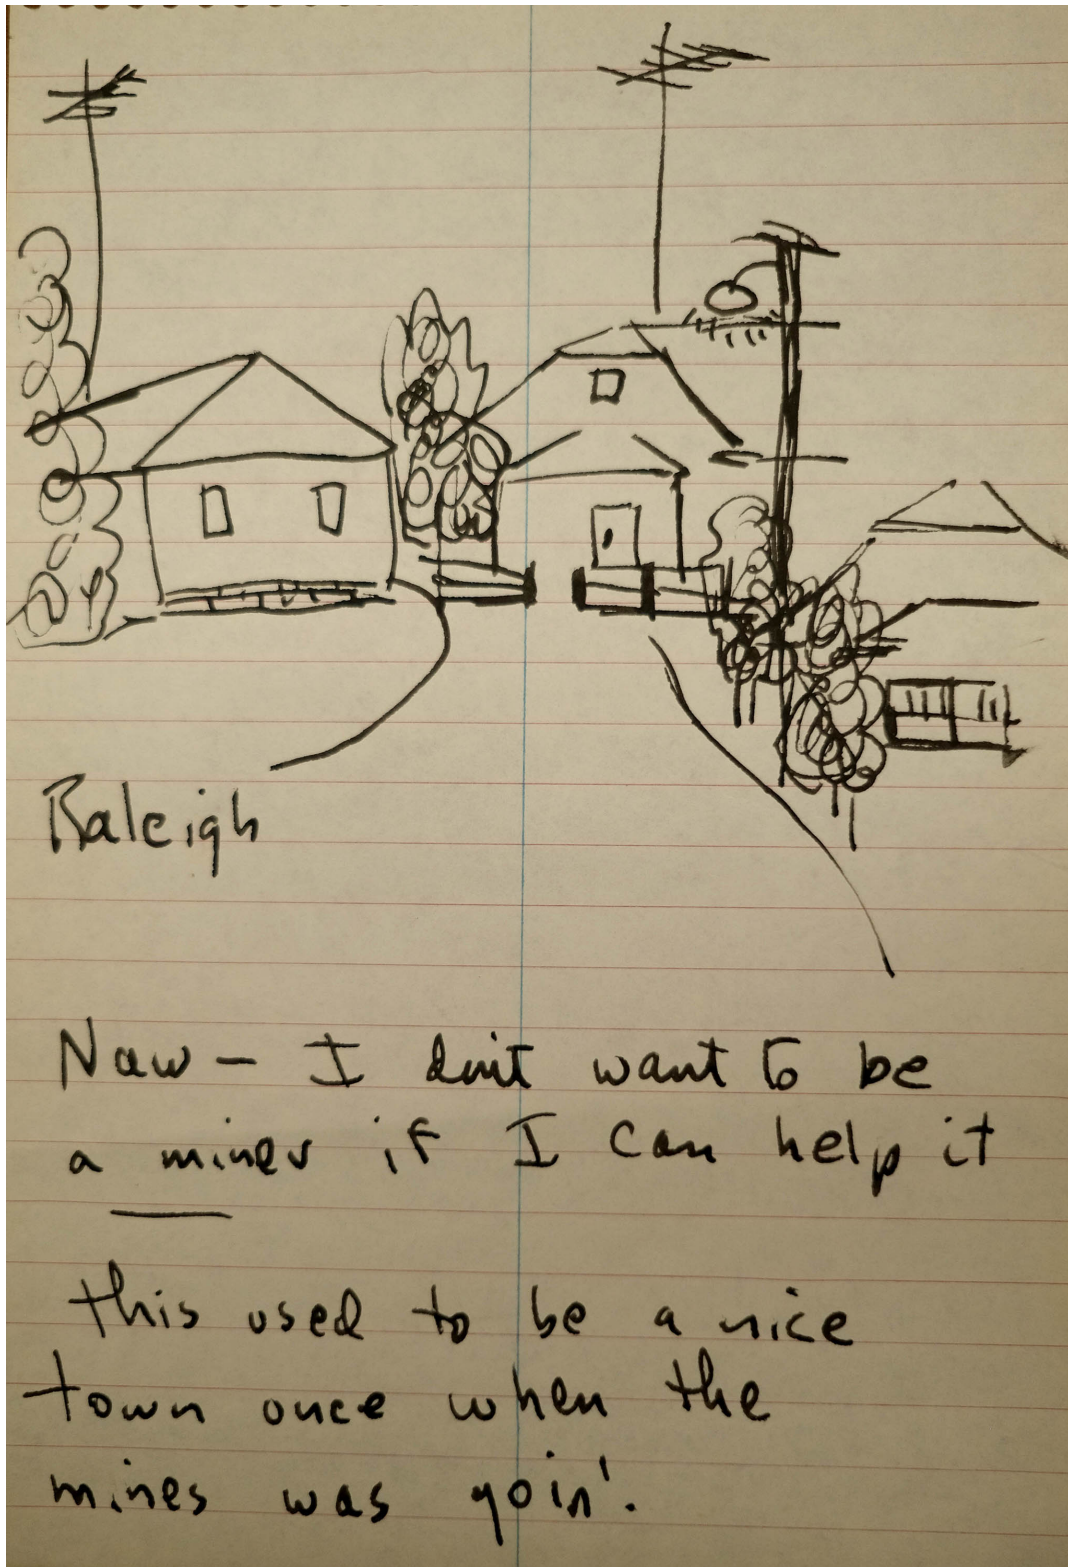 Raleigh
Naw – I don't want to be
a miner if I can help it
this used to be a nice
town once when the
mines was goin'.